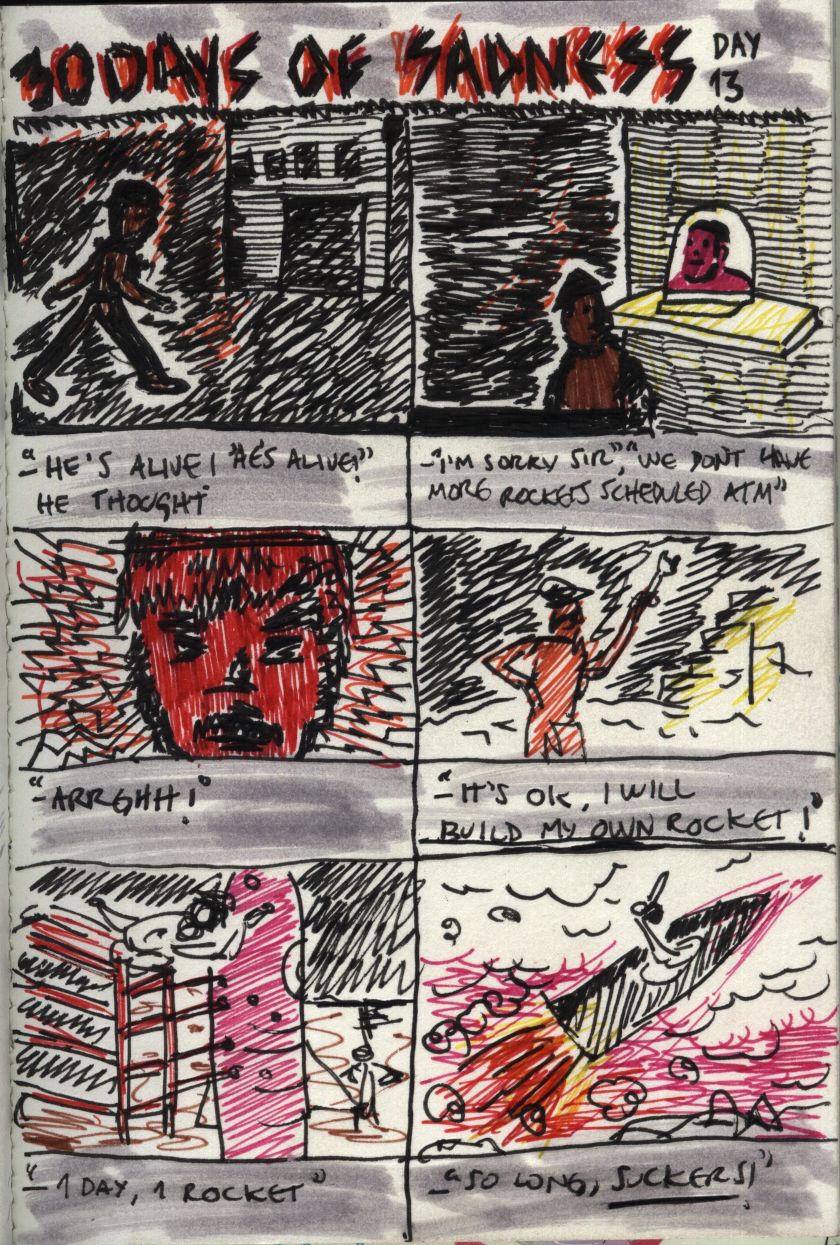 30 DAYS OF SADNESS
DAY
13
"-HE'S ALIVE! "HE'S ALIVE!"
HE THOUGHT
-"I'M SORRY SIR", "WE DON'T HAVE
MORE ROCKETS SCHEDULED ATM"
"-ARRGHH!"
"-IT'S OK, I WILL
BUILD MY OWN ROCKET!"
"-1 DAY, 1 ROCKET"
-"SO LONG, SUCKERS!"